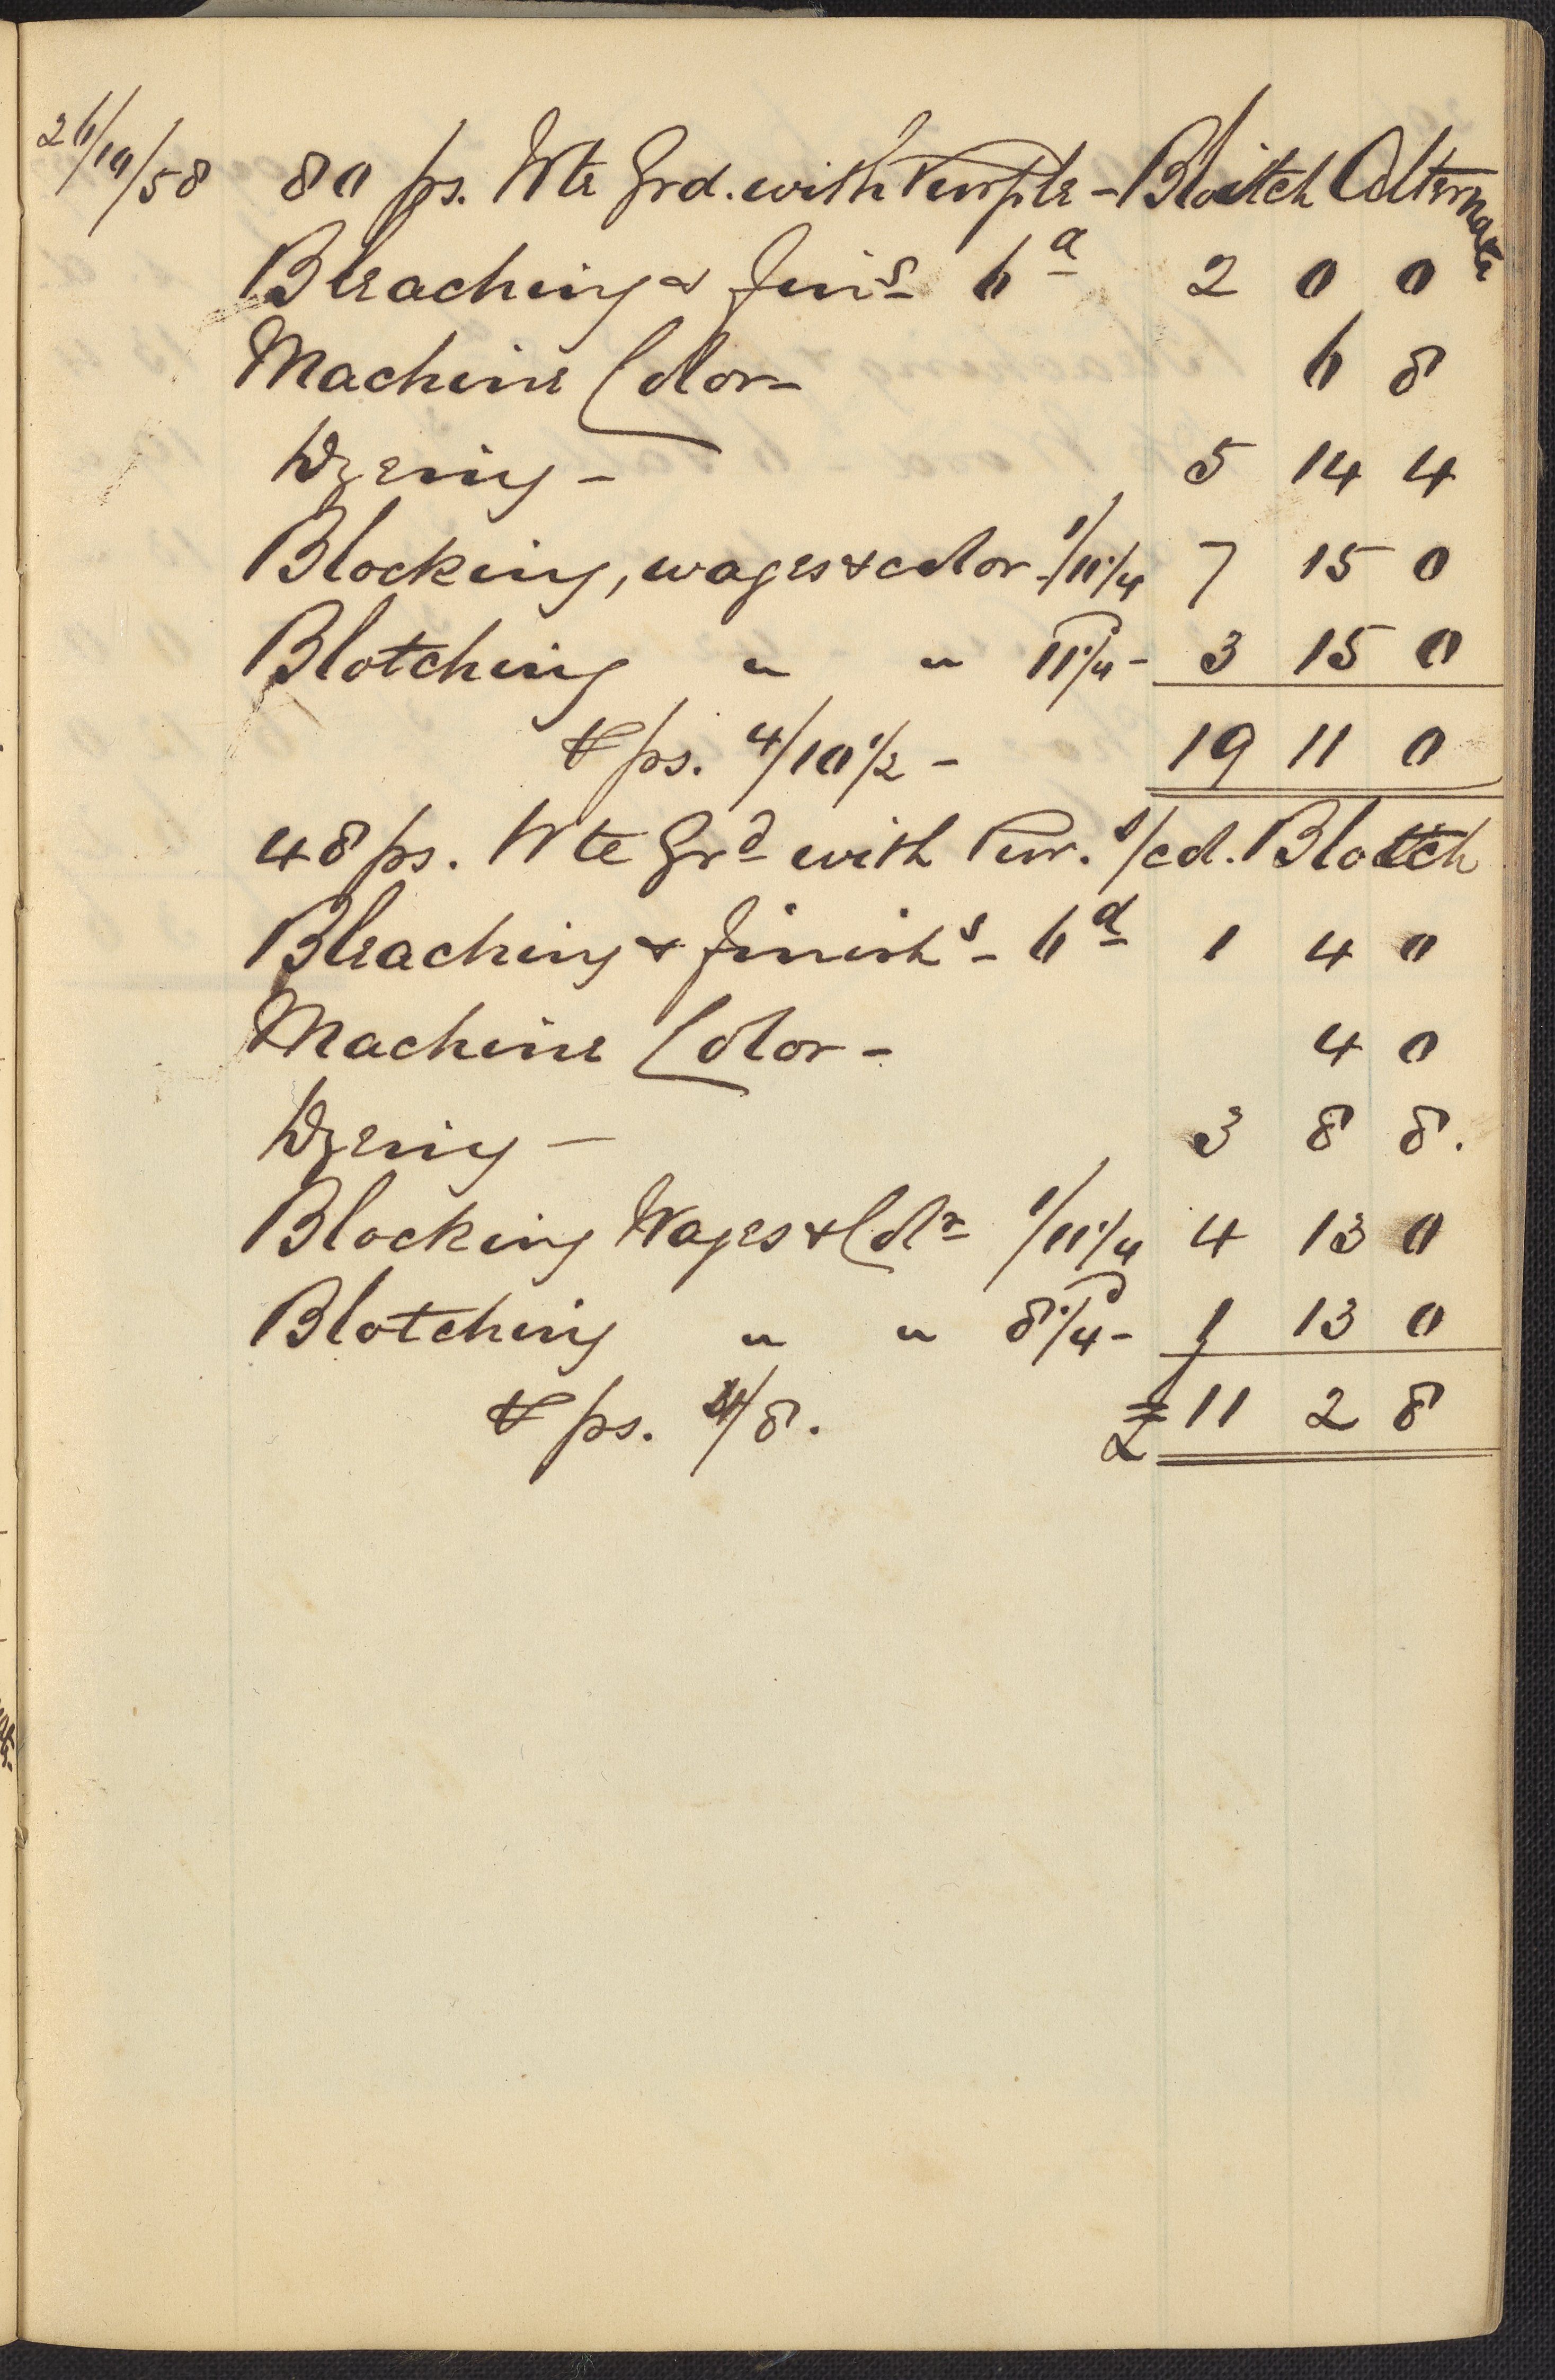 26/10/58 80 ps. Wte Grd. with Purple - Blotch Alternate
Bleaching & Fins 6d 2 0 0
Machine Color - 6 8
Dyeing - 5 14 4
Blocking, wages & color 1/11 1/4 7 15 0
Blotching " " 11 1/4 - 3 15 0
℔ ps. 4/10 1/2 - 19 11 0
48 ps. Wte Grd with Pur. 1/cd. Blotch
Bleaching & finishs - 6d 1 4 0
Machine Color - 4 0
Dyeing - 3 8 8.
Blocking Wages & Colr 1/11 1/4 4 13 0
Blotching " " 8 1/4 - 1 13 0
℔ ps. 4/8. £ 11 2 8